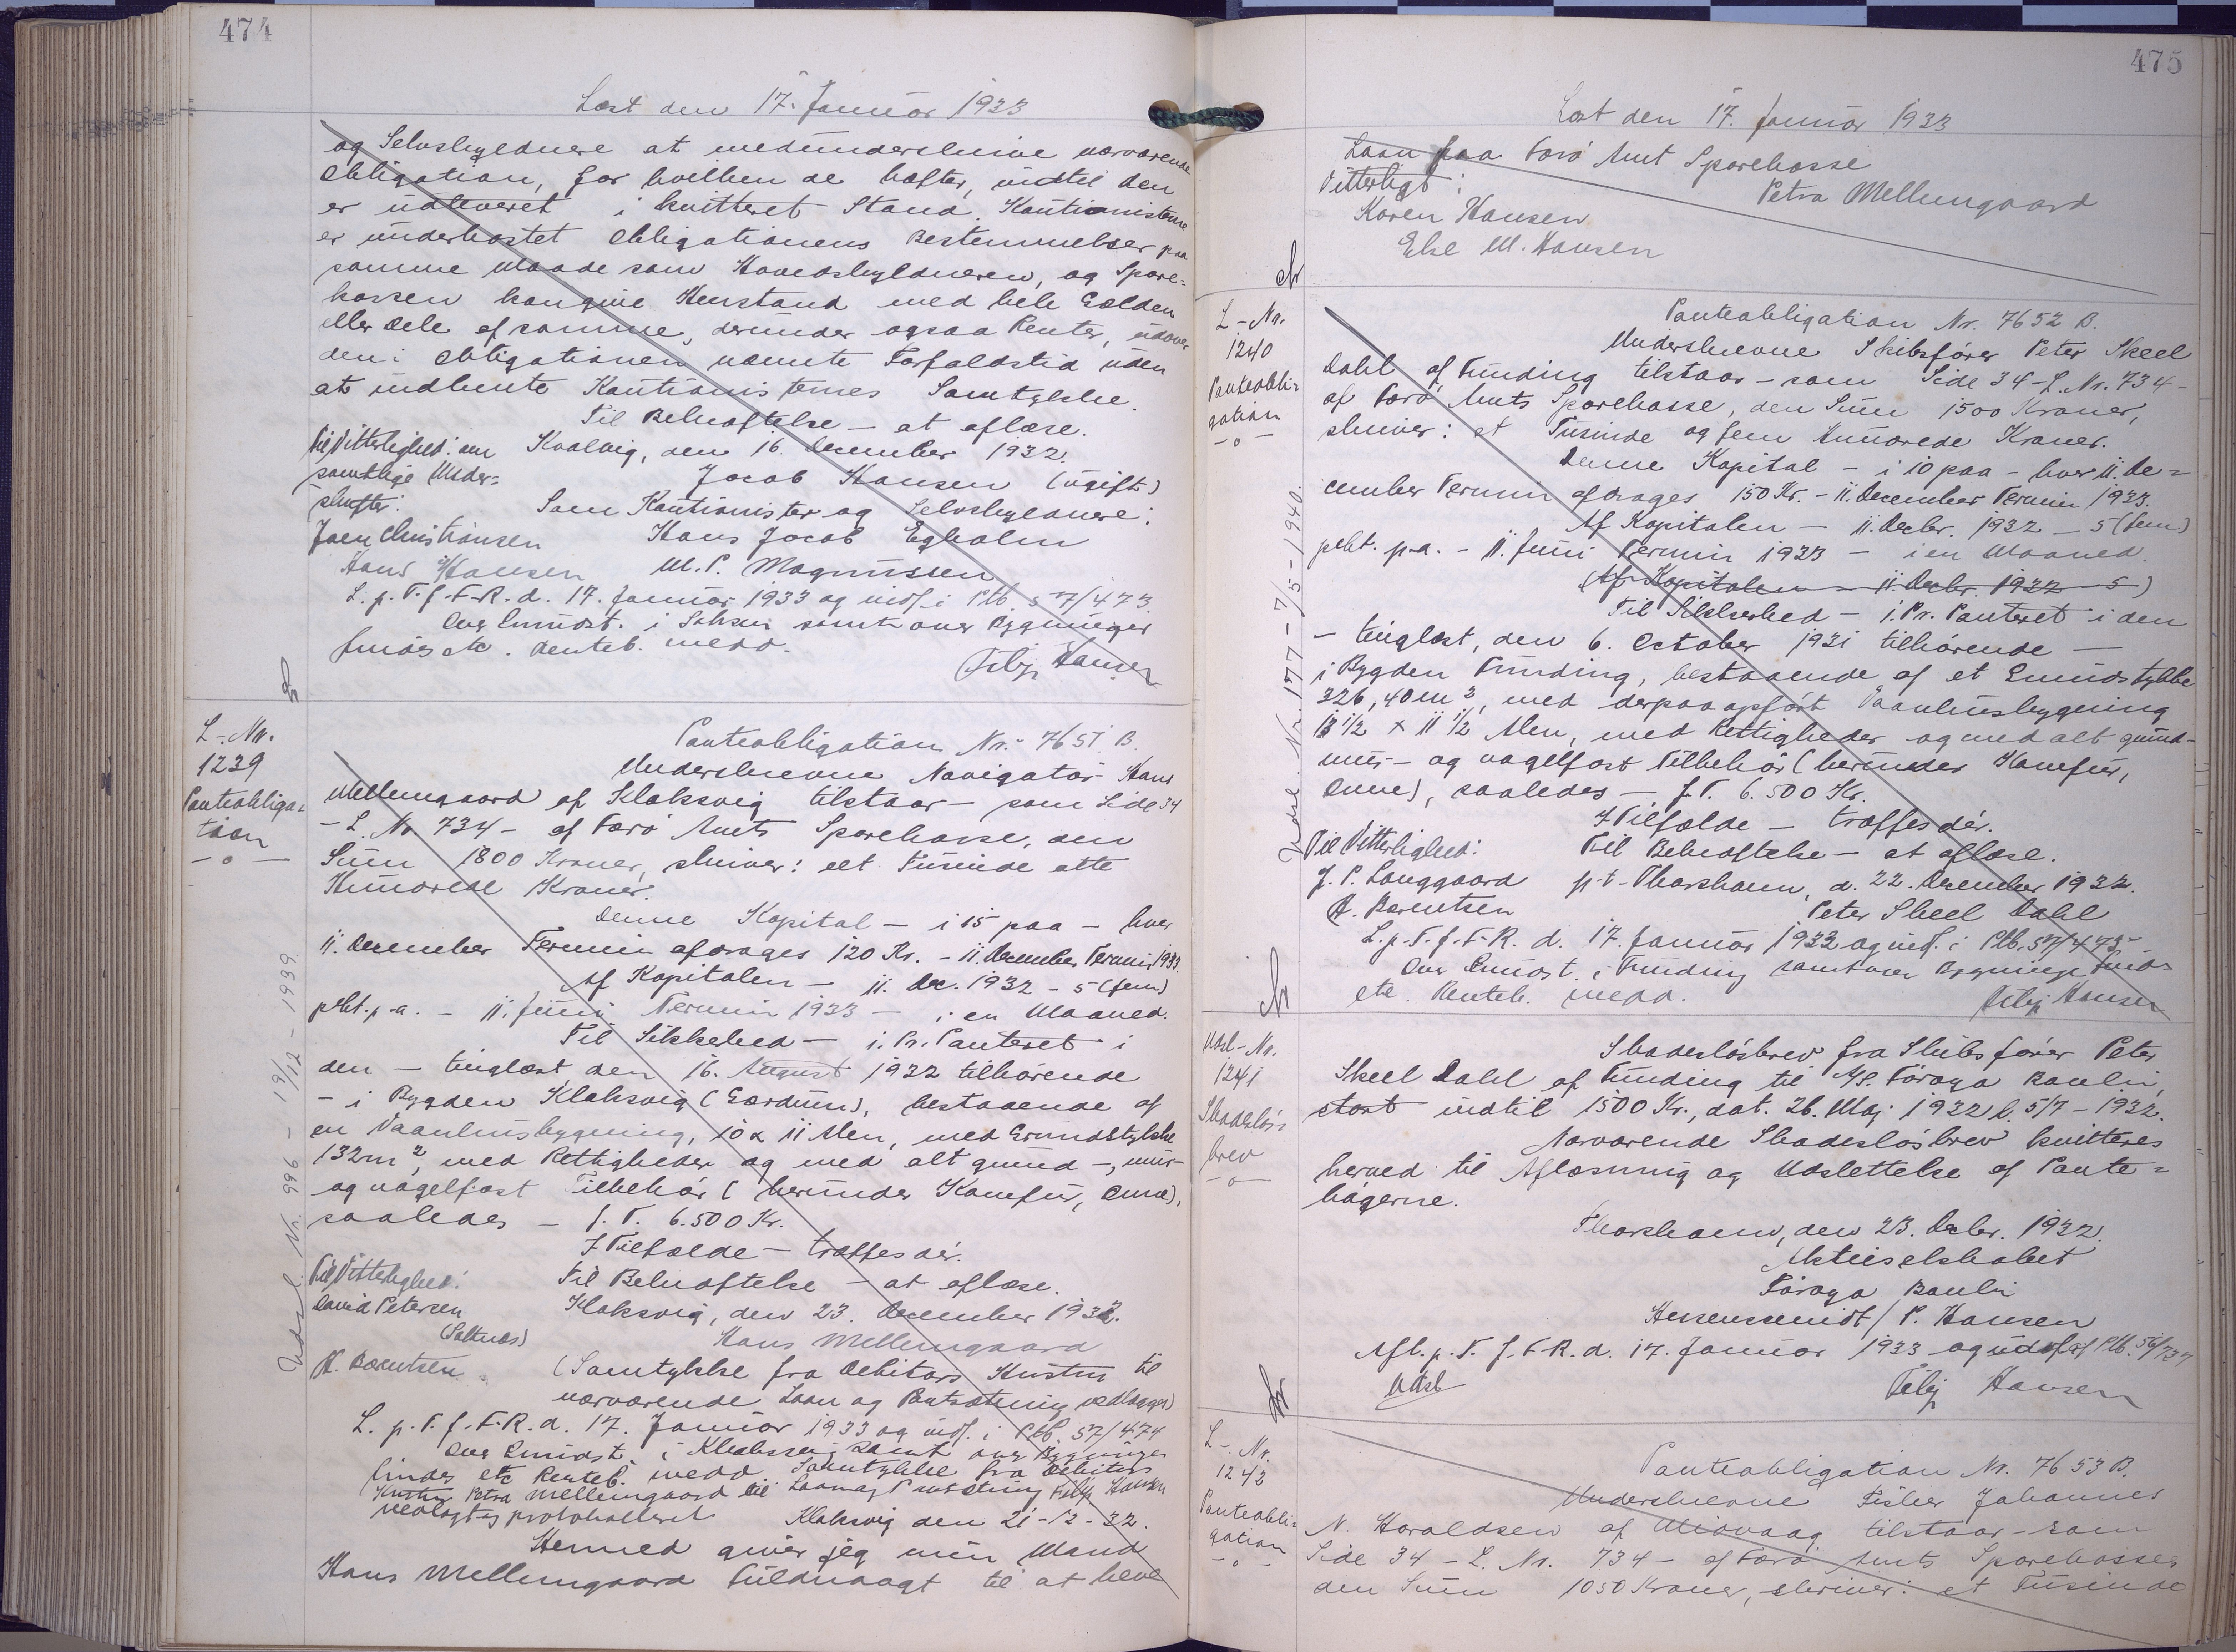 474
Læst den 17. Januar 1933
og Selvskyldnere at medunderskrive nærværende
Obligation, for hvilken de hæfter, indtil den
er udleveret i kvitteret Stand. Kautionisterne
er underkastet Obligationens Bestemmelser paa
samme Maade som Hovedskyldneren, og Spare=
kassen kan give Henstand med hele Gælden
eller Dele af samme, derunder ogsaa Renter, udover
den i Obligationen nævnte Forfaldstid uden
at indhente Kautionisternes Samtykke.
Til Bekræftelse — at aflæse.
Til Vitterlighed: om Kvalvig, den 16. December 1932.
samtlige Under= Jacob Hansen (ugift)
skrifter: Som Kautionister og Selvskyldnere:
Joen Christiansen Hans Jacob Egholm
Hans Hansen M. P. Magnussen
L. p. T. f. F-R. d. 17. Januar 1933 og indf. i Ptb. 57/473.
Over Grundst. i Saksun samt over Bygninger
findes etc. Renteb. medd.
Filip Hansen
L.-Nr.
1239
Panteobliga=
tion
—o—
Panteobligation Nr. 7651 B.
Underskrevne Navigatör Hans
Mellemgaard af Klaksvig tilstaar — som Side 34
— L. Nr 734 — af Færö Amts Sparekasse, den
Sum 1800 Kroner, skriver: eet Tusinde otte
Hundrede Kroner.
Denne Kapital — i 15 paa — hver
11. December Termin afdrages 120 Kr. — 11. December Termin 1933.
Af Kapitalen — 11. Dec. 1932 — 5 (fem)
pCt. p.a. — 11. Juni Termin 1933 — i en Maaned.
Til Sikkerhed — i. Pr. Panteret i
den — tinglæst den 16. August 1932 tilhörende
— i Bygden Klaksvig (Gærdum), bestaaende af
en Vaaningsbygning, 10 x 11 Alen, med Grundstykke
132 m², med Rettigheder og med alt grund-, mur-
og nagelfast Tilbehör (herunder Komfur, Ovne),
saaledes — f. T. 6.500 Kr.
I Tilfælde — træffes dér.
Til Vitterlighed: Til Bekræftelse — at aflæse.
David Petersen Klaksvig, den 23. December 1932.
(Saltnæs) Hans Mellemgaard
K. Bærentsen (Samtykke fra Debitors Hustru til
nærværende Laan og Pantsætning vedlægges)
L. p. T. f. F-R. d. 17. Januar 1933 og indf. i Ptb. 57/474
Over Grundst. i Klaksvig samt over Bygninger
findes etc Renteb. medd. Samtykke fra Debitors
Hustru Petra Mellemgaard til Laan og Pantsætning Filip Hansen
vedlagt og protokolleret Klaksvig den 21-12-32.
Hermed giver jeg min Mand
Hans Mellemgaard Fuldmagt til at hæve
Udsl. Nr. 996 — 19/12 — 1939.
475
Læst den 17. Januar 1933
Laan paa Færö Amt Sparekasse
Vitterligt: Petra Mellemgaard
Karen Hansen
Else M. Hansen
L-Nr.
1240
Panteobli=
gation
—o—
Panteobligation Nr. 7652 B.
Underskrevne Skibsförer Peter Skeel
Dahl af Funding tilstaar — som Side 34 — L. Nr. 734 —
af Færö Amts Sparekasse, den Sum 1500 Kroner,
skriver: et Tusinde og fem Hundrede Kroner.
Denne Kapital — i 10 paa — hver 11. De=
cember Termin afdrages 150 Kr. — 11. December Termin 1933.
Af Kapitalen — 11. Decbr. 1932 — 5 (fem)
pCt. p.a. — 11. Juni Termin 1933 — i en Maaned.
(Af Kapitalen — 11. Decbr. 1932 — 5)
Til Sikkerhed — i. Pr. Panteret i den
— tinglæst, den 6. October 1931 tilhörende —
i Bygden Funding, bestaaende af et Grundstykke
326,40 m², med derpaa opfört Vaaningsbygning
13 1/2 x 11 1/2 Alen, med Rettigheder og med alt grund-
mur- og nagelfast Tilbehör (herunder Komfur,
Ovne), saaledes — f. T. 6.500 Kr.
I Tilfælde — træffes dér.
Til Vitterlighed: Til Bekræftelse — at aflæse.
J. P. Langgaard p.t. Thorshavn, d. 22. December 1932.
K. Bærentsen Peter Skeel Dahl
L. p. T. f. F-R. d. 17. Januar 1933 og indf. i Ptb. 57/475
Over Grundst. i Funding samt over Bygninger findes
etc. Renteb. medd. Filip Hansen
Udsl. Nr. 177 — 7/5 — 1940.
Udsl-Nr.
1241
Skadeslös=
brev
—o—
Skadeslösbrev fra Skibsförer Peter
Skeel Dahl af Funding til A/S. Föroya Banki,
stort indtil 1500 Kr., dat. 26. Maj 1932 l. 5/7 — 1932.
Nærværende Skadeslösbrev kvitteres
herved til Aflæsning og Udslettelse af Pante=
bögerne.
Thorshavn, den 23. Decbr. 1932.
Aktieselskabet
Föroya Banki
/ P. Hansen
Afl. p. T. f. F-R. d. 17. Januar 1933 og udsl. af Ptb. 56/737
Udsl Filip Hansen
L-. Nr.
1242
Panteobli=
gation
—o—
Panteobligation Nr. 7653 B.
Underskrevne Fisker Johannes
N. Haraldsen af Midvaag tilstaar — som
Side 34 — L. Nr. 734 — af Færö Amts Sparekasse,
den Sum 1050 Kroner, skriver: et Tusinde